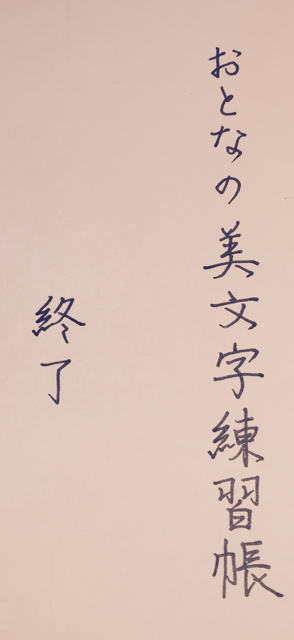 おとなの美文字練習帳
終了